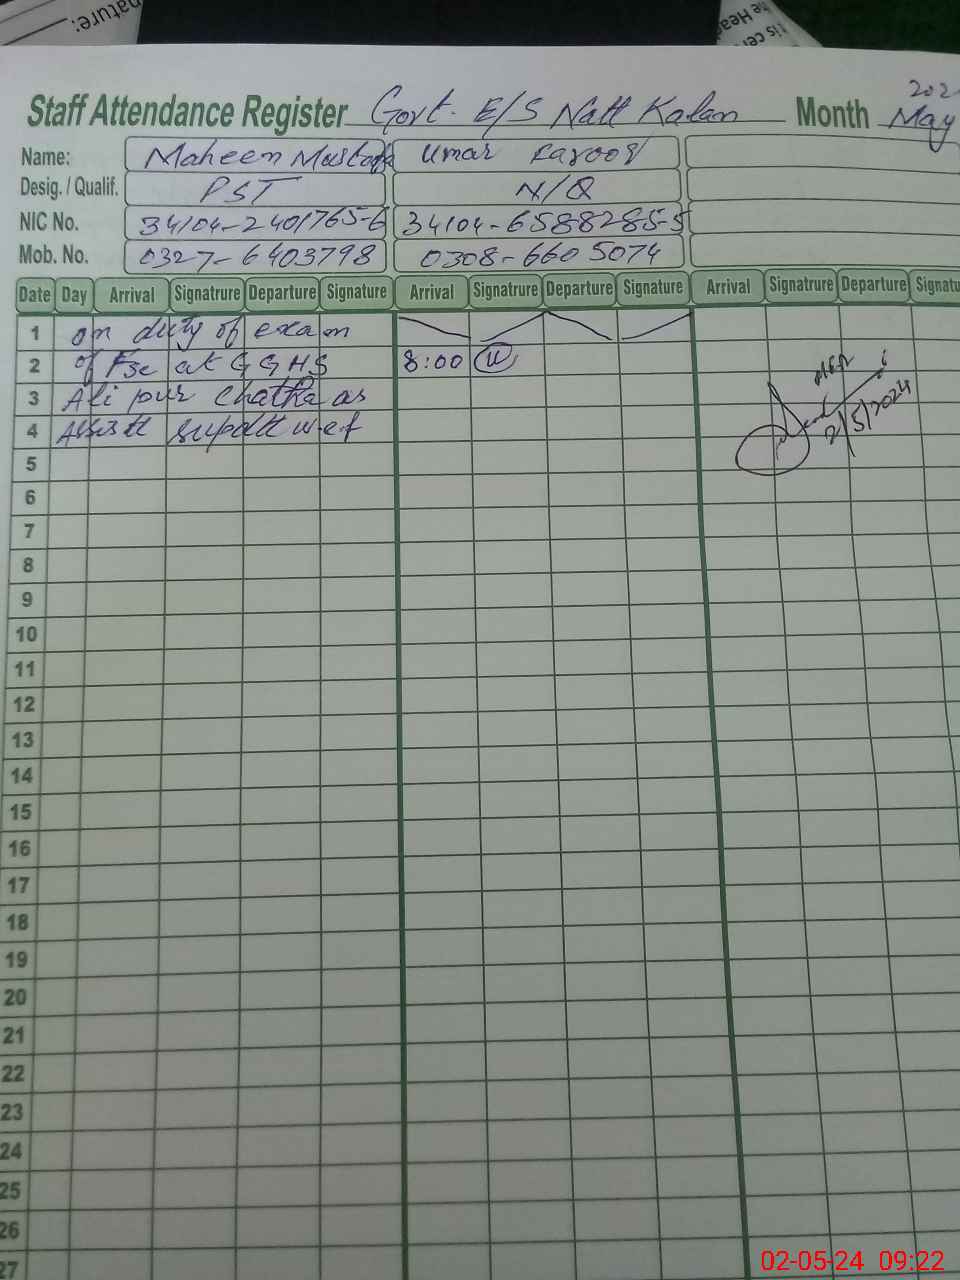 nature:
is cer
he Head
Staff Attendance Register Govt. E/S Natt Kalan Month May 202
Name: Maheen Mustafa Umar Farooq
Desig. / Qualif. PST N/Q
NIC No. 34104-2401765-6 34104-6588285-5
Mob. No. 0327-6403798 0308-6605074
Date Day Arrival Signatrure Departure Signature Arrival Signatrure Departure Signature Arrival Signatrure Departure Signatu
1 on duty of exam
2 of Fsc at GGHS 8:00 U
3 Ali pur Chatha as
4 Assistt supdtt w-e-f
2/5/2024
5
6
7
8
9
10
11
12
13
14
15
16
17
18
19
20
21
22
23
24
25
26
27
02-05-24 09:22